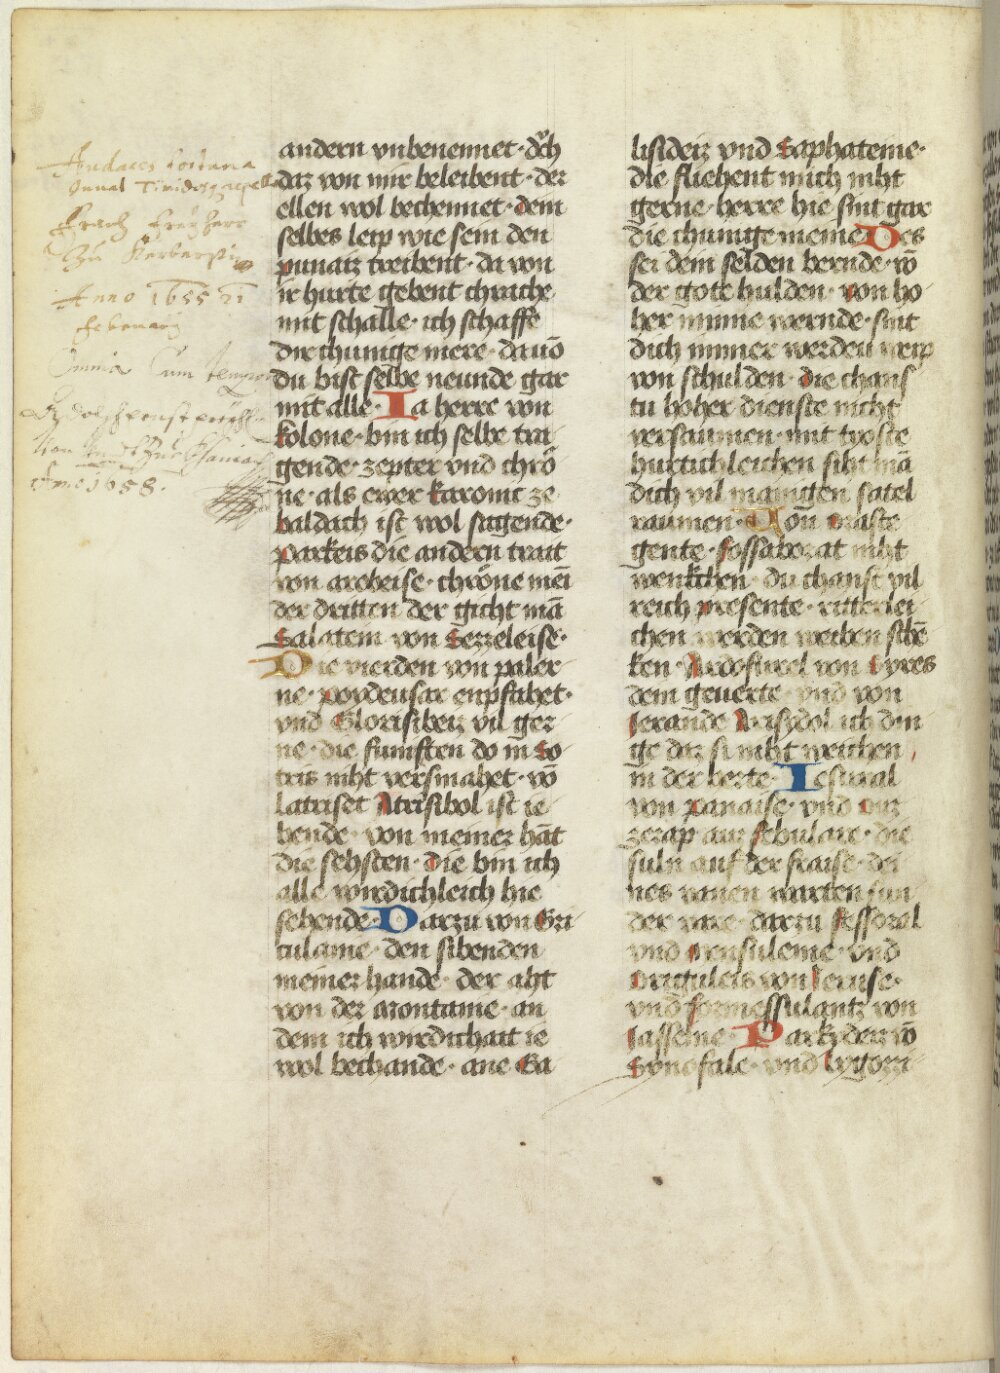 Anno 1655 21
Omnia Cum tempore
Anno 1658.
andern vnbenennet · doch
daz von mir beleibent · der
ellen wol bechennet · dem
selbes leip wie sein den
punaiz treibent · da von
ir hurte gebent chrache
mit schalle · ich schaffe
dir chunige mere · dauō
du bist selbe neunde gar
mit alle · Ia herre von
kolone · bin ich selbe tra-
gende · zepter vnd chrō-
ne · als ewer karomt ze
baldach ist wol sagende ·
Parkeis die andern trait
von arobeise · chrōne mei
der dritten der gicht mā
Salatein von Sezzeleise ·
Die vierden von paler-
ne · pordensar enpfahet ·
vnd Glorisibeiz vil ger-
ne · die funften do in so-
tris niht versmahet · vō
latriset Atrisibol ist ie-
hende · von meiner hāt
die sehsten · die bin ich
alle wirdichleich hie
sehende · Darzu von Gri-
culanie · den sibenden
meiner hande · der aht
von der Montanie · an
dem ich wirdichait ie
wol bechande · ane Ga-
lisideiz vnd Saphateine ·
die fliehent mich niht
gerne · herre hie sint gar
die chunige meine Des
sei dein selden bernde · vō
der gote hulden · von ho-
her minne wernde · sint
dich immer werdeu weip
von schulden · die chans-
tu hoher dienste nicht
versaumen · mit tyoste
hurtichleichen siht mā
dich vil manigen satel
raumen · Von Maste
gente · fossaborat niht
wenkchen · du chanst vil
reich presente · ritterlei-
chen werden weiben schē-
ken · Ardofusel von Syres
dem geuerte · vnd von
Ierande Arisydol ich din-
ge daz si niht weichen
in der herte · Iesural
von Panaise · vnd Cur-
zezap aur Sebulare · die
suln auf der fraise · dei-
nes vanen warten sun-
der vare · darzu fessoral
vnd Mensuleine · vnd
Driguleis von Ieruse ·
vnd formessulantz von
Iasseine · Parkyden vō
Synofale · vnd Lygozzi-